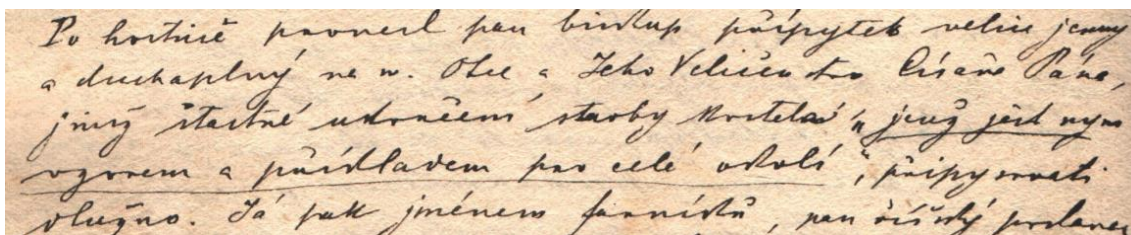 Po hostině pronesl pan biskup přípytek velice jemný
a duchaplný na sv. Otce a Jeho Veličenstvo Císaře Pána,
jimž šťastné ukončení stavby kostela „jenž jest nyní
vzorem a příkladem pro celé okolí“, připisovati
slušno. Já pak jménem farníků, pan říšský poslanec